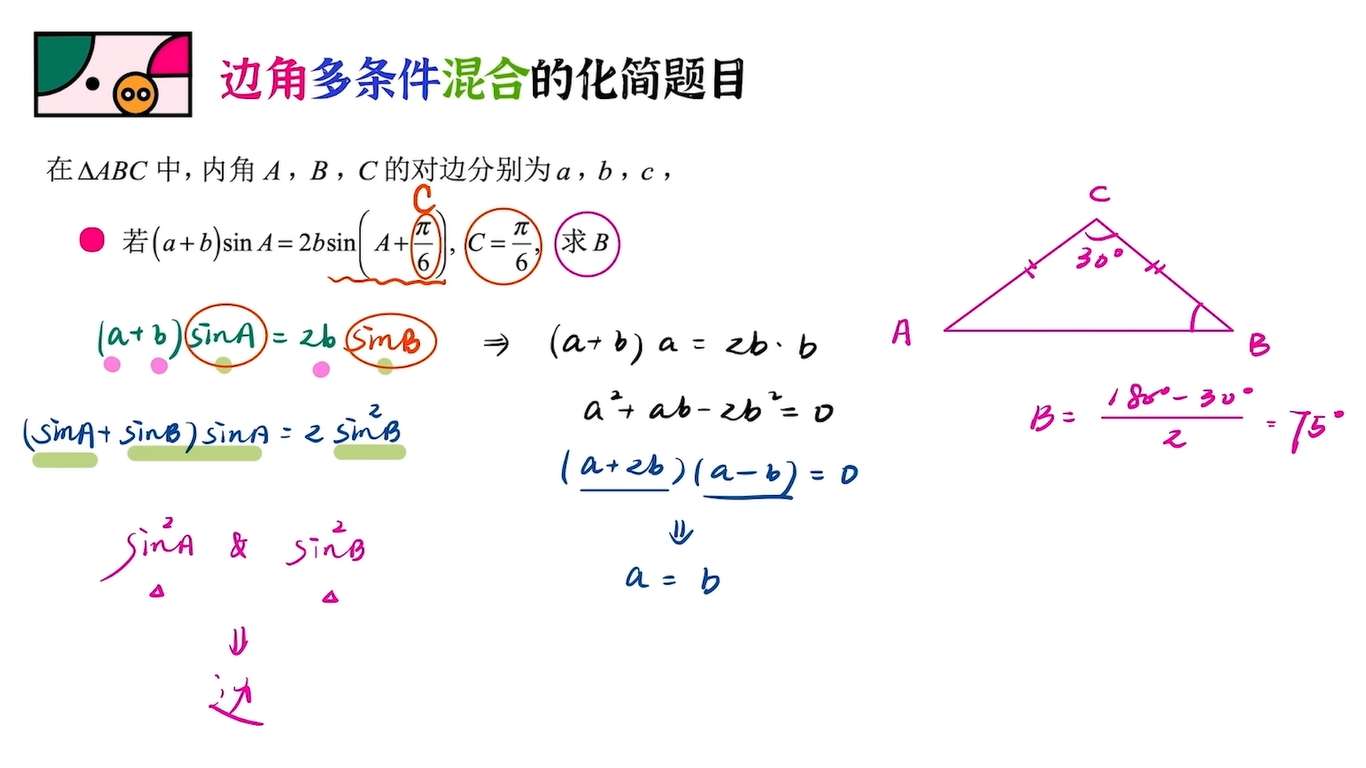 边角多条件混合的化简题目
在 ΔABC 中，内角 A，B，C 的对边分别为 a，b，c，
C
若(a+b)sin A=2bsin(A+π/6), C=π/6, 求 B
(a+b)sinA = 2b sinB ⇒ (a+b) a = 2b·b
a²+ab-2b²=0
(sinA+sinB)sinA = 2 sin²B
(a+2b)(a-b) = 0
⇓
a = b
sin²A & sin²B
Δ Δ
⇓
边
C
30°
A B
B = (180°-30°)/2 = 75°